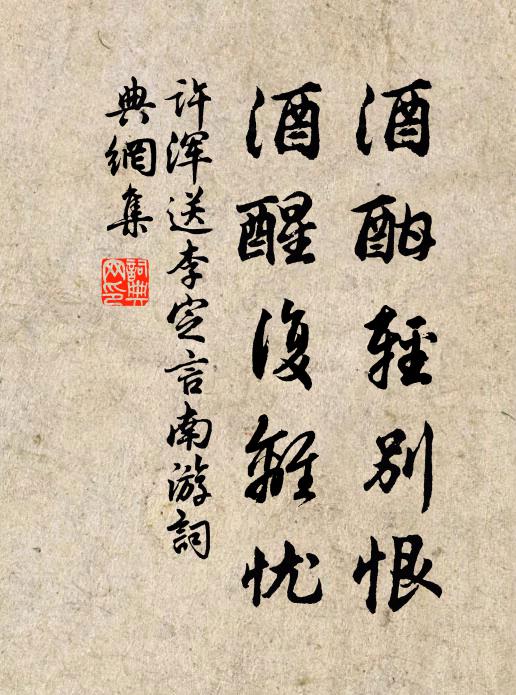 酒酣輕別恨
酒醒復離忧
许浑送李定言南游詞
典網集
詞典
网印